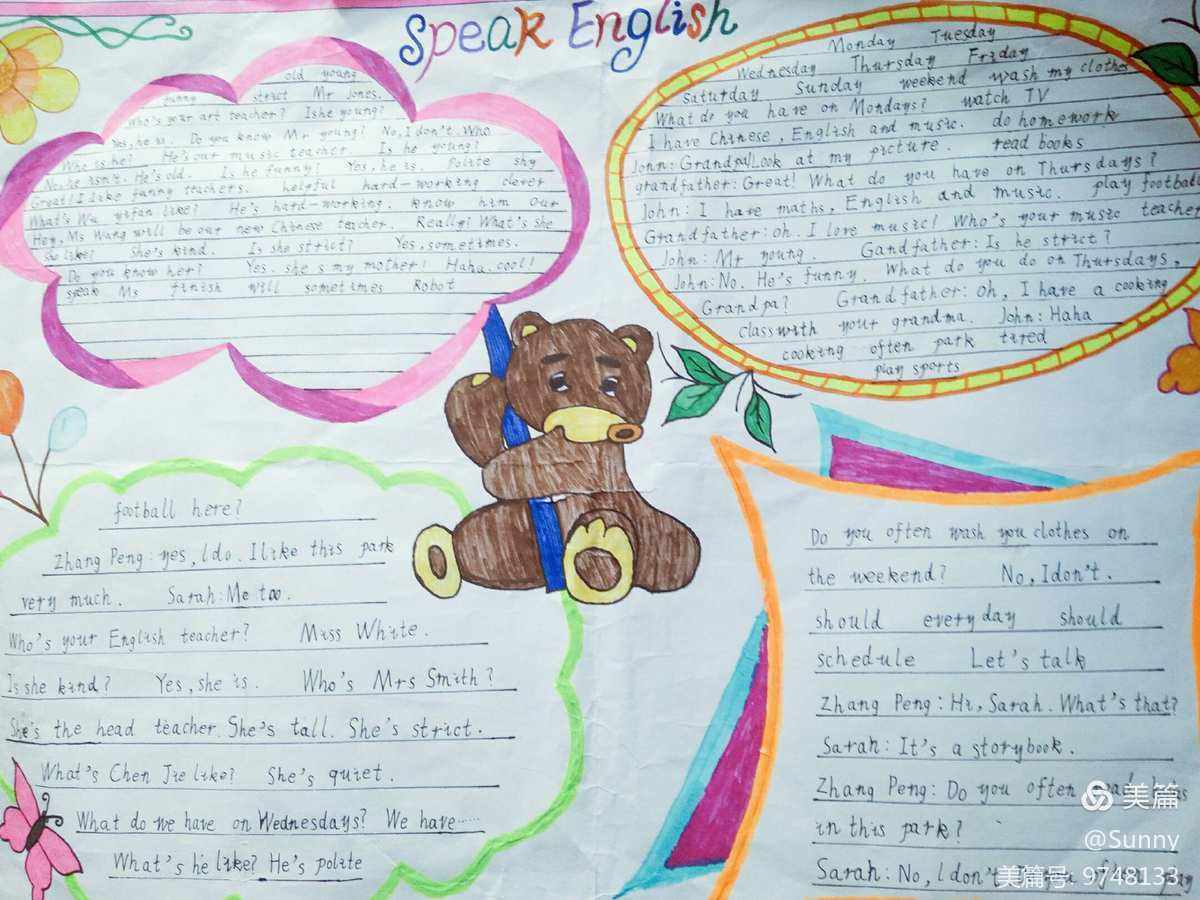 Speak English
old young
funny strict Mr Jones.
Who's your art teacher? Is he young?
Yes, he is. Do you know Mr young? No, I don't. Who
Who is he? He's our music teacher. Is he young?
No, he isn't. He's old. Is he funny? Yes, he is. Polite shy
Great! I like funny teachers. helpful hard-working clever
What's Wu Yifan like? He's hard-working. know him our
Hey, Ms Wang will be our new Chinese teacher. Really? What's she
she like? She's kind. Is she strict? Yes, sometimes.
Do you know her? Yes. she s my mother! Haha. cool!
speak Ms finish will sometimes Robot
Monday Tuesday
Wednesday Thursday Friday
saturday Sunday weekend wash my clothes
What do you have on Mondays? watch TV
I have Chinese, English and music. do homework
John: Grandpa! Look at my picture. read books
grandfather: Great! What do you have on Thursdays?
John: I have maths, English and music. play football
Grandfather: oh. I love music! Who's your music teacher
John: Mr young. Gandfather: Is he strict?
John: No. He's funny. What do you do on Thursdays,
Grandpa? Grandfather: Oh, I have a cooking
class with your grandma. John: Haha
cooking often park tired
play sports
football here?
Zhang Peng: yes, I do. I like this park
very much. Sarah: Me too.
Who's your English teacher? Miss White.
Is she kind? Yes, she is. Who's Mrs Smith?
She's the head teacher. She's tall. She's strict.
What's Chen Jie like? She's quiet.
What do we have on Wednesdays? We have……
What's he like? He's polite
Do you often wash you clothes on
the weekend? No, I don't.
should everyday should
schedule Let's talk
Zhang Peng: Hi, Sarah. What's that?
Sarah: It's a storybook.
Zhang Peng: Do you often
in this park?
Sarah: No, I don't
美篇
@Sunny
美篇号 9748133